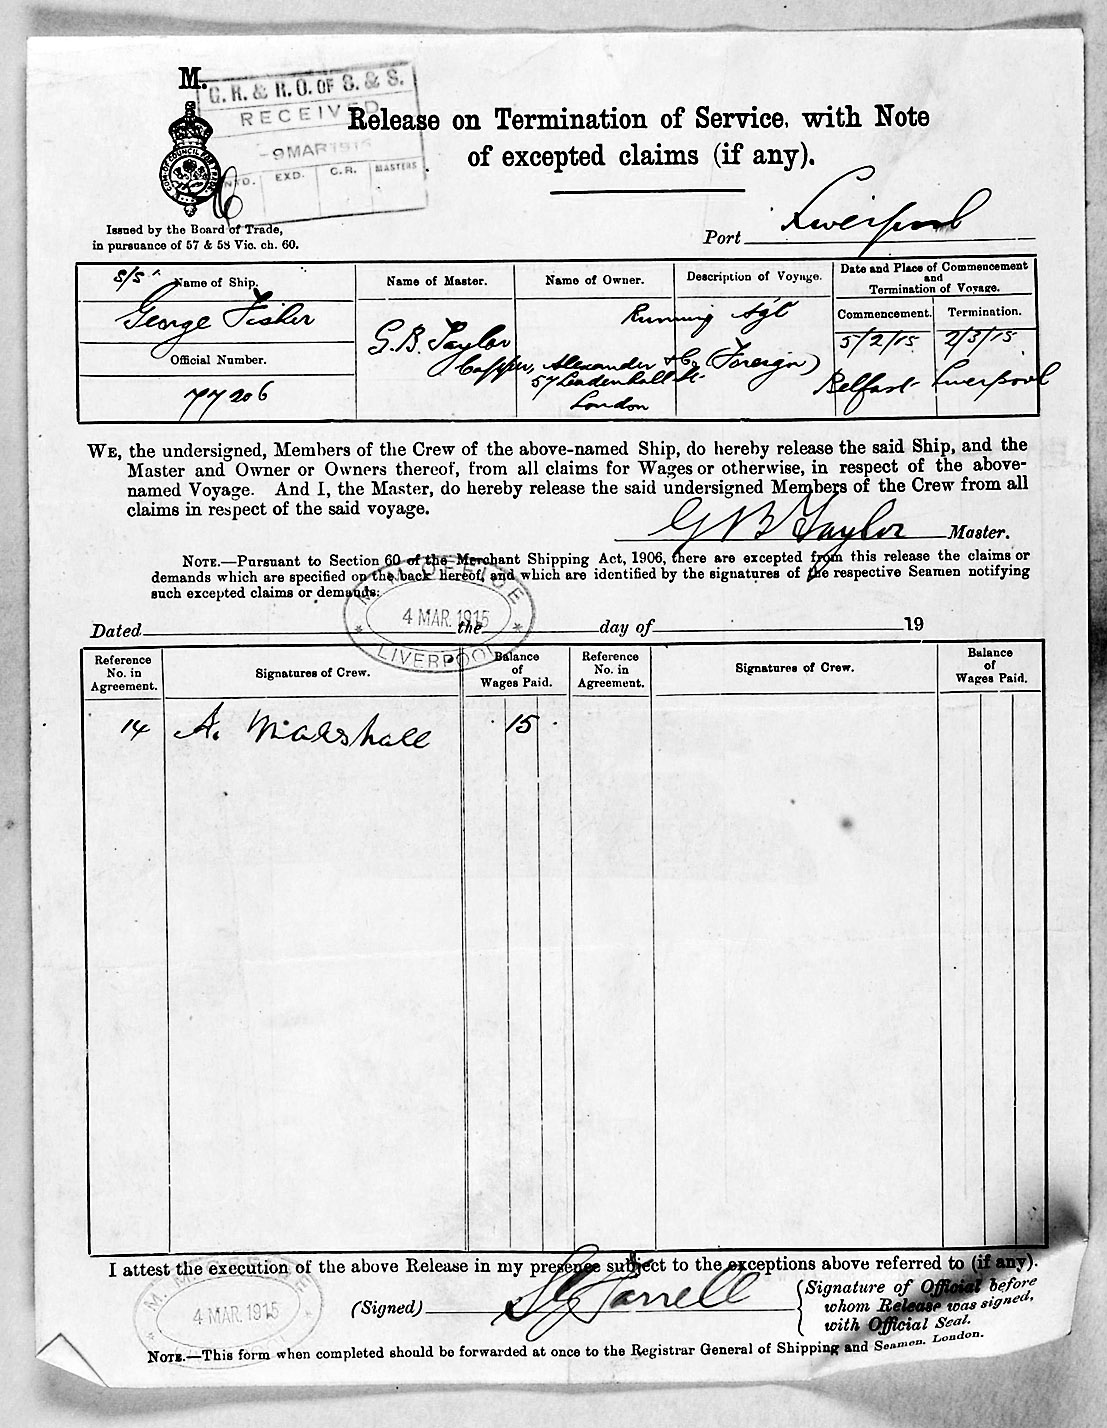 M.
G. R. & R. O. OF S. & S.
RECEIVED
-9 MAR 1915
NTD. EXD. C.R. MASTERS
COM. OF COUNCIL FOR TRADE
Release on Termination of Service, with Note
of excepted claims (if any).
Issued by the Board of Trade,
in pursuance of 57 & 58 Vic. ch. 60.
Port Liverpool
S/S Name of Ship.
George Fisher
Official Number.
77206
Name of Master.
G.B. Taylor
Name of Owner.
Capper, Alexander & Co
57 Leadenhall St.
London
Description of Voyage.
Running Agt
(Foreign)
Date and Place of Commencement
and
Termination of Voyage.
Commencement. Termination.
5/2/15 2/3/15
Belfast Liverpool
WE, the undersigned, Members of the Crew of the above-named Ship, do hereby release the said Ship, and the
Master and Owner or Owners thereof, from all claims for Wages or otherwise, in respect of the above-
named Voyage. And I, the Master, do hereby release the said undersigned Members of the Crew from all
claims in respect of the said voyage.
G B Taylor Master.
NOTE.—Pursuant to Section 60 of the Merchant Shipping Act, 1906, there are excepted from this release the claims or
demands which are specified on the back hereof, and which are identified by the signatures of the respective Seamen notifying
such excepted claims or demands.
M. M. OFFICE
4 MAR. 1915
LIVERPOOL
Dated the day of 19
Reference
No. in
Agreement.
Signatures of Crew.
Balance
of
Wages Paid.
Reference
No. in
Agreement.
Signatures of Crew.
Balance
of
Wages Paid.
14 A. Marshall 15
I attest the execution of the above Release in my presence subject to the exceptions above referred to (if any).
(Signed)
Signature of Official before
whom Release was signed,
with Official Seal.
4 MAR. 1915
NOTE.—This form when completed should be forwarded at once to the Registrar General of Shipping and Seamen, London.